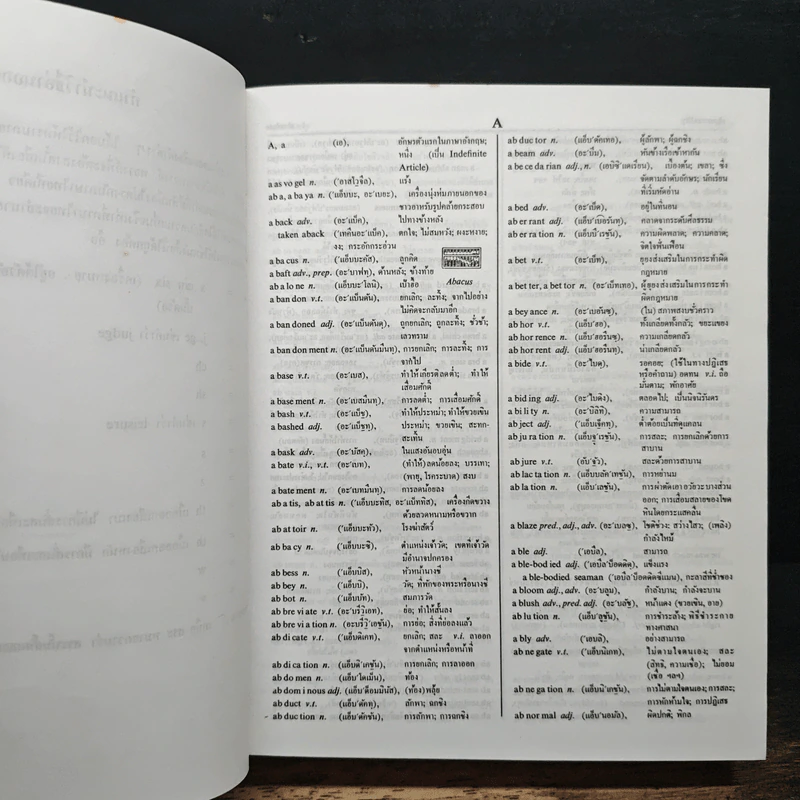 A
A, a (เอ), อักษรตัวแรกในภาษาอังกฤษ;
หนึ่ง (เป็น Indefinite
Article)
a as vo gel n. ('อาสโวจึล), แร้ง
ab a, a ba ya n. ('แอ็บบะ, อะ'เบอะ), เครื่องนุ่งห่มภายนอกของ
ชาวอาหรับรูปคล้ายกระสอบ
a back adv. (อะ'แบ็ค), ไปทางข้างหลัง
taken aback ('เทคึนอะ'แบ็ค), ตกใจ; ไม่สมหวัง; ผงะหงาย;
งง; กระอักกระอ่วน
a ba cus n. ('แอ็บบะคัส), ลูกคิด
a baft adv., prep. (อะ'บาฟทฺ), ด้านหลัง; ข้างท้าย
ab a lo ne n. (แอ็บบะ'โลนิ), เป๋าฮื้อ Abacus
a ban don v.t. (อะ'แบ็นดัน), ยกเลิก; ละทิ้ง; จากไปอย่าง
ไม่คิดจะกลับมาอีก
a ban doned adj. (อะ'แบ็นดันดฺ), ถูกยกเลิก; ถูกละทิ้ง; ชั่วช้า;
เลวทราม
a ban don ment n. (อะ'แบ็นดันมึนทฺ), การยกเลิก; การละทิ้ง; การ
จากไป
a base v.t. (อะ'เบส), ทำให้เกียรติลดต่ำ; ทำให้
เสื่อมศักดิ์
a base ment n. (อะ'เบสมึนทฺ), การลดต่ำ; การเสื่อมศักดิ์
a bash v.t. (อะ'แบ็ช), ทำให้ประหม่า; ทำให้ขวยเขิน
a bashed adj. (อะ'แบ็ชทฺ), ประหม่า; ขวยเขิน; สะทก-
สะเทิ้น
a bask adv. (อะ'บัสคฺ), ในแสงอันอบอุ่น
a bate v.i., v.t. (อะ'เบท), (ทำให้)ลดน้อยลง; บรรเทา;
(พายุ, โรคระบาด) สงบ
a bate ment n. (อะ'เบทมึนทฺ), การลดน้อยลง
ab a tis, ab at tis n. ('แอ็บบะทิส, อะ'แบ็ททิส), เครื่องกีดขวาง
ด้วยลวดหนามหรือขวาก
ab at toir n. ('แอ็บบะทัว), โรงฆ่าสัตว์
ab ba cy n. ('แอ็บบะซิ), ตำแหน่งเจ้าวัด; เขตที่เจ้าวัด
มีอำนาจปกครอง
ab bess n. ('แอ็บบิส), หัวหน้านางชี
ab bey n. ('แอ็บบิ), วัด; ที่พักของพระหรือนางชี
ab bot n. ('แอ็บบัท), สมภารวัด
ab bre vi ate v.t. (อะ'บรีวิเอท), ย่อ; ทำให้สั้นลง
ab bre vi a tion n. (อะบรีวิ'เอชัน), การย่อ; สิ่งที่ย่อลงแล้ว
ab di cate v.t. ('แอ็บดิเคท), ยกเลิก; สละ v.i. ลาออก
จากตำแหน่งหรือหน้าที่
ab di ca tion n. (แอ็บดิ'เคชัน), การยกเลิก; การลาออก
ab do men n. ('แอ็บโดเม็น), ท้อง
ab dom i nous adj. (แอ็บ'ด็อมมินัส), (ท้อง)พลุ้ย
ab duct v.t. (แอ็บ'ดัคทฺ), ลักพา; ฉกชิง
ab duc tion n. (แอ็บ'ดัคชัน), การลักพา; การฉกชิง
ab duc tor n. (แอ็บ'ดัคเทอ), ผู้ลักพา; ผู้ฉกชิง
a beam adv. (อะ'บีม), ทับข้างเรือเข้าหากัน
a be ce da rian adj. (เอบิซิ'แดเรียน), เบื้องต้น; เขลา; ซึ่ง
จัดตามลำดับอักษร; นักเรียน
ที่เริ่มหัดอ่าน
a bed adv. (อะ'เบ็ด), อยู่ในที่นอน
ab er rant adj. (แอ็บ'เบอรันทฺ), คลาดจากระดับศีลธรรม
ab er ra tion n. (แอ็บบี'เรชัน), ความผิดพลาด; ความคลาด;
จิตใจฟั่นเฟือน
a bet v.t. (อะ'เบ็ท), ยุยงส่งเสริมในการกระทำผิด
กฎหมาย
a bet ter, a bet tor n. (อะ'เบ็ทเทอ), ผู้ยุยงส่งเสริมในการกระทำ
ผิดกฎหมาย
a bey ance n. (อะ'เบอันซฺ), (ใน) สภาพสงบชั่วคราว
ab hor v.t. (แอ็บ'ฮอ), ทั้งเกลียดทั้งกลัว; ขยะแขยง
ab hor rence n. (แอ็บ'ฮอรึนซฺ), ความเกลียดกลัว
ab hor rent adj. (แอ็บ'ฮอรึนทฺ), น่าเกลียดกลัว
a bide v.t. (อะ'ไบดฺ), รอคอย; (ใช้ในทางปฏิเสธ
หรือคำถาม) อดทน v.i. ถือ
มั่นตาม; พักอาศัย
a bid ing adj. (อะ'ไบดิง), ตลอดไป; เป็นนิจนิรันดร
a bil i ty n. (อะ'บิลิทิ), ความสามารถ
ab ject adj. ('แอ็บเจ็คทฺ), ต่ำต้อยเป็นที่ดูแคลน
ab ju ra tion n. (แอ็บจู'เรชัน), การสละ; การยกเลิกด้วยการ
สาบาน
ab jure v.t. (อับ'จัว), สละด้วยการสาบาน
ab lac ta tion n. (แอ็บแล็ค'เทชัน), การหย่านม
ab la tion n. (แอ็บ'เลชัน), การผ่าตัดเอาอวัยวะบางส่วน
ออก; การเสื่อมสลายของโขด
หินโดยกระแสคลื่น
a blaze pred., adj., adv. (อะ'เบลซฺ), โชติช่วง; สว่างไสว; (เพลิง)
กำลังไหม้
a ble adj. ('เอบึล), สามารถ
a ble-bod ied adj. ('เอบึล'บ็อดดิด), แข็งแรง
a ble-bodied seaman ('เอบึล'บ็อดดิดซีแมน), กะลาสีที่ช่ำของ
a bloom adj., adv. (อะ'บลูม), กำลังบาน; กำลังจะบาน
a blush adv., pred. adj. (อะ'บลัช), หน้าแดง (ขวยเขิน, อาย)
ab lu tion n. (แอ็บ'ลูชัน), การชำระล้าง; พิธีชำระกาย
ทางศาสนา
a bly adv. ('เอบลิ), อย่างสามารถ
ab ne gate v.t. ('แอ็บนิเกท), ไม่ตามใจตนเอง; สละ
(สิทธิ, ความเชื่อ); ไม่ยอม
(เชื่อ ฯลฯ)
ab ne ga tion n. (แอ็บนิ'เกชัน), การไม่ตามใจตนเอง; การสละ;
การหักห้ามใจ; การปฏิเสธ
ab nor mal adj. (แอ็บ'นอมัล), ผิดปกติ; พิกล